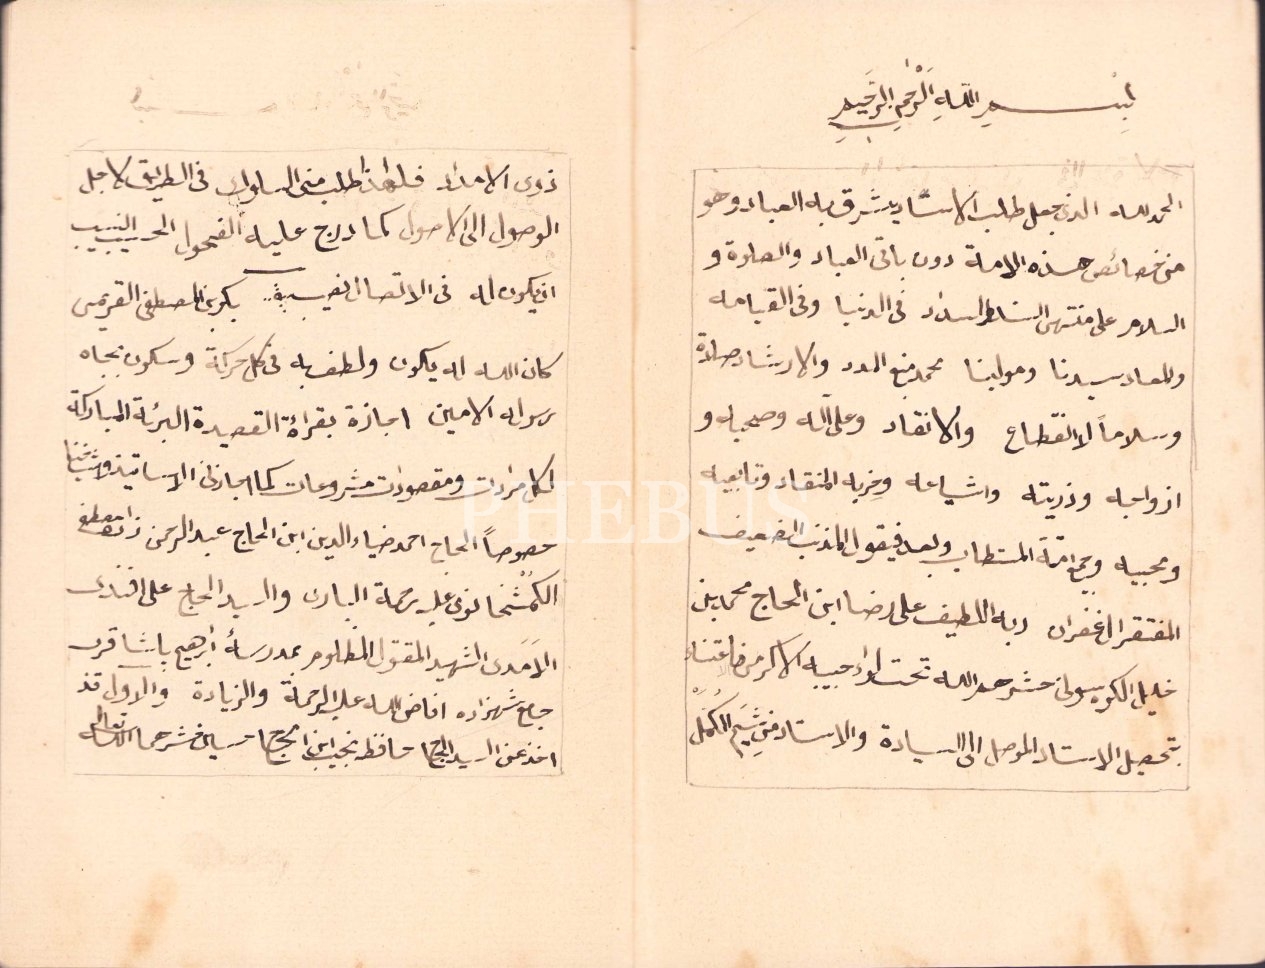 بسم الله الرحمن الرحيم
الحمد لله الذى جعل طلب الاستاد يشرق به العباد وهو
من خصائص هذه الامة دون باقى العباد والصلوة و
السلام على منتهى السداد فى الدنيا وفى القيامه
وللمعاد سيدنا ومولينا محمد منبع المدد والارشاد صلاة
وسلاماً لا انقطاع والانفاد وعلى آله وصحبه و
ازواجه وذريته واشياعه وحزبه المنقاد وتابعيه
ومحبيه وجميع امته المستطاب وبعد فيقول المذنب الضعيف
المفتقر الى غفران ربه اللطيف على رضا ابن الحاج محمد بن
خليل الكويسولى حشرهم الله تحت لواء حبيبه الاكرم من
بتحصيل الاستاد الموصل الى السيادة والاستاد من شيم الكمل
ذوى الامداد فلهذا طلب منى السلوك فى الطرائق لاجل
الوصول الى الاصول كما درج عليه الفحول الحسيب النسيب
ان يكون له فى الاتصال نصيب بكر بن المصطفى القريمى
كان الله له يكون ولطف به فى كل حركة وسكون بجاه
رسوله الامين اجازة بقرائة القصيدة البرئة المباركة
لكل مرادات ومقصودات مشروعات كما اجازنى الاساتيذ ومشايخنا
خصوصاً الحاج احمد ضياء الدين ابن الحاج عبد الرحمن
الكمشخانوى عليه رحمة البارى والسيد الحاج على افندى
الامدى الشهيد المقتول المظلوم بمدرسة ابرهيم پاشا قرب
جامع شهزاده افاض الله عليه الرحمة والزيادة والاول قد
اخذ عن السيد الحاج حافظ نجيب ابن الحاج حسين حشرهما الله تعالى
PHEBUS